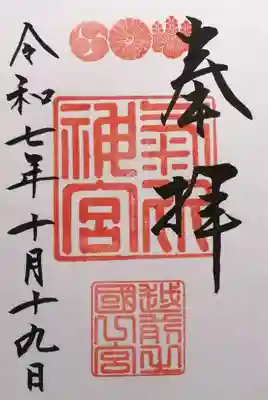 奉拝
氣比
神宮
越前之
國一宮
令和七年十月十九日